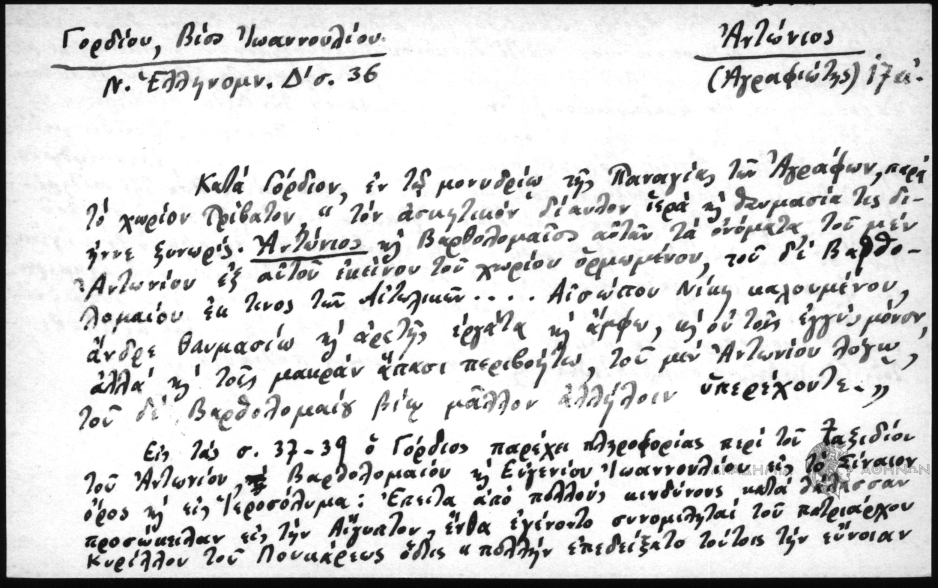 Γορδίου, Βίος Ἰωαννουλίου.
Ν. Ἑλληνομν. Δ' σ. 36
Ἀντώνιος
(Ἀγραφιώτης) 17 αἰ.
Κατά Γόρδιον, ἐν τῷ μονυδρίῳ τῆς Παναγίας τῶν Ἀγράφων, παρά
τό χωρίον Τρίβατον "τόν ἀσκητικόν δίαυλον ἱερά κ̀ θαυμασία τις δι-
ήννε ξυνωρίς. Ἀντώνιος κ̀ Βαρθολομαῖος αὐτῶν τά ὀνόματα τοῦ μέν
Ἀντωνίου ἐξ αὐτοῦ ἐκείνου τοῦ χωρίου ὁρμωμένου, τοῦ δέ Βαρθο-
λομαίου ἐκ τινος τῶν Αἰτωλικῶν .... Αἰσώπου Νίκη καλουμένου,
ἄνδρε θαυμασίω κ̀ ἀρετῆς ἐργάτα κ̀ ἄμφω, κ̀ οὐ τοῖς ἐγγύς μόνον,
ἀλλά κ̀ τοῖς μακράν ἅπασι περιβοήτω, τοῦ μέν Ἀντωνίου λόγῳ,
τοῦ δέ Βαρθολομαίου βίῳ μᾶλλον ἀλλήλοιν ὑπερέχοντε."
Εἰς τάς σ. 37-39 ὁ Γόρδιος παρέχει πληροφορίας περί τοῦ ταξιδίου
τοῦ Ἀντωνίου, Βαρθολομαίου κ̀ Εὐγενίου Ἰωαννουλίου εἰς τό Σίναιον
ὄρος κ̀ εἰς Ἱεροσόλυμα: Ἔπειτα ἀπό πολλούς κινδύνους κατά θάλασσαν
προσώκειλαν εἰς τήν Αἴγυπτον, ἔνθα ἐγένοντο συνομιληταί τοῦ πατριάρχου
Κυρίλλου τοῦ Λουκάρεως ὅστις "πολλήν ἐπεδείξατο τούτοις τήν εὔνοιαν
ΑΘΗΝΩΝ